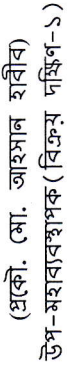 (প্রকৌ. মো. আহসান হাবীব)
উপ-মহাব্যবস্থাপক (বিক্রয় দক্ষিণ-১)